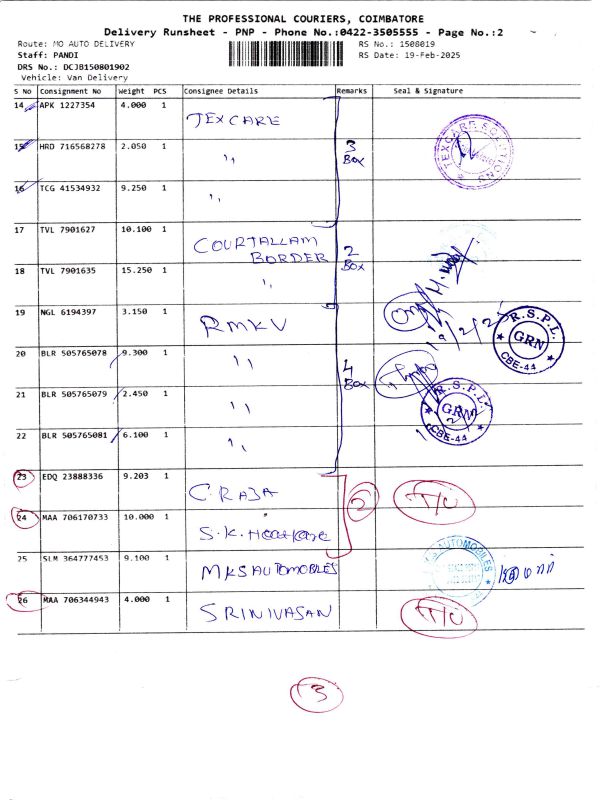 THE PROFESSIONAL COURIERS, COIMBATORE
Delivery Runsheet - PNP - Phone No.:0422-3505555 - Page No.:2
Route: MO AUTO DELIVERY RS No.: 1508019
Staff: PANDI RS Date: 19-Feb-2025
DRS No.: DCJB150801902
Vehicle: Van Delivery
S No Consignment No Weight PCS Consignee Details Remarks Seal & Signature
14 APK 1227354 4.000 1 TEXCARE
15 HRD 716568278 2.050 1 ,, 3 Box TEXCARE SOLUTIONS
16 TCG 41534932 9.250 1 ,,
17 TVL 7901627 10.100 1 COURTALLAM BORDER 2 Box
18 TVL 7901635 15.250 1 ,,
19 NGL 6194397 3.150 1 RMKV 19/2/25 R.S.P.L. GRN CBE-44
20 BLR 505765078 9.300 1 ,, 4 Box
21 BLR 505765079 2.450 1 ,, R.S.P.L. GRN CBE-44
22 BLR 505765081 6.100 1 ,,
23 EDQ 23888336 9.203 1 C.RAJA 2 T/U
24 MAA 706170733 10.000 1 S.K.
25 SLM 364777453 9.100 1 MKS AUTOMOBILES AUTOMOBILES
26 MAA 706344943 4.000 1 SRINIVASAN T/U
3